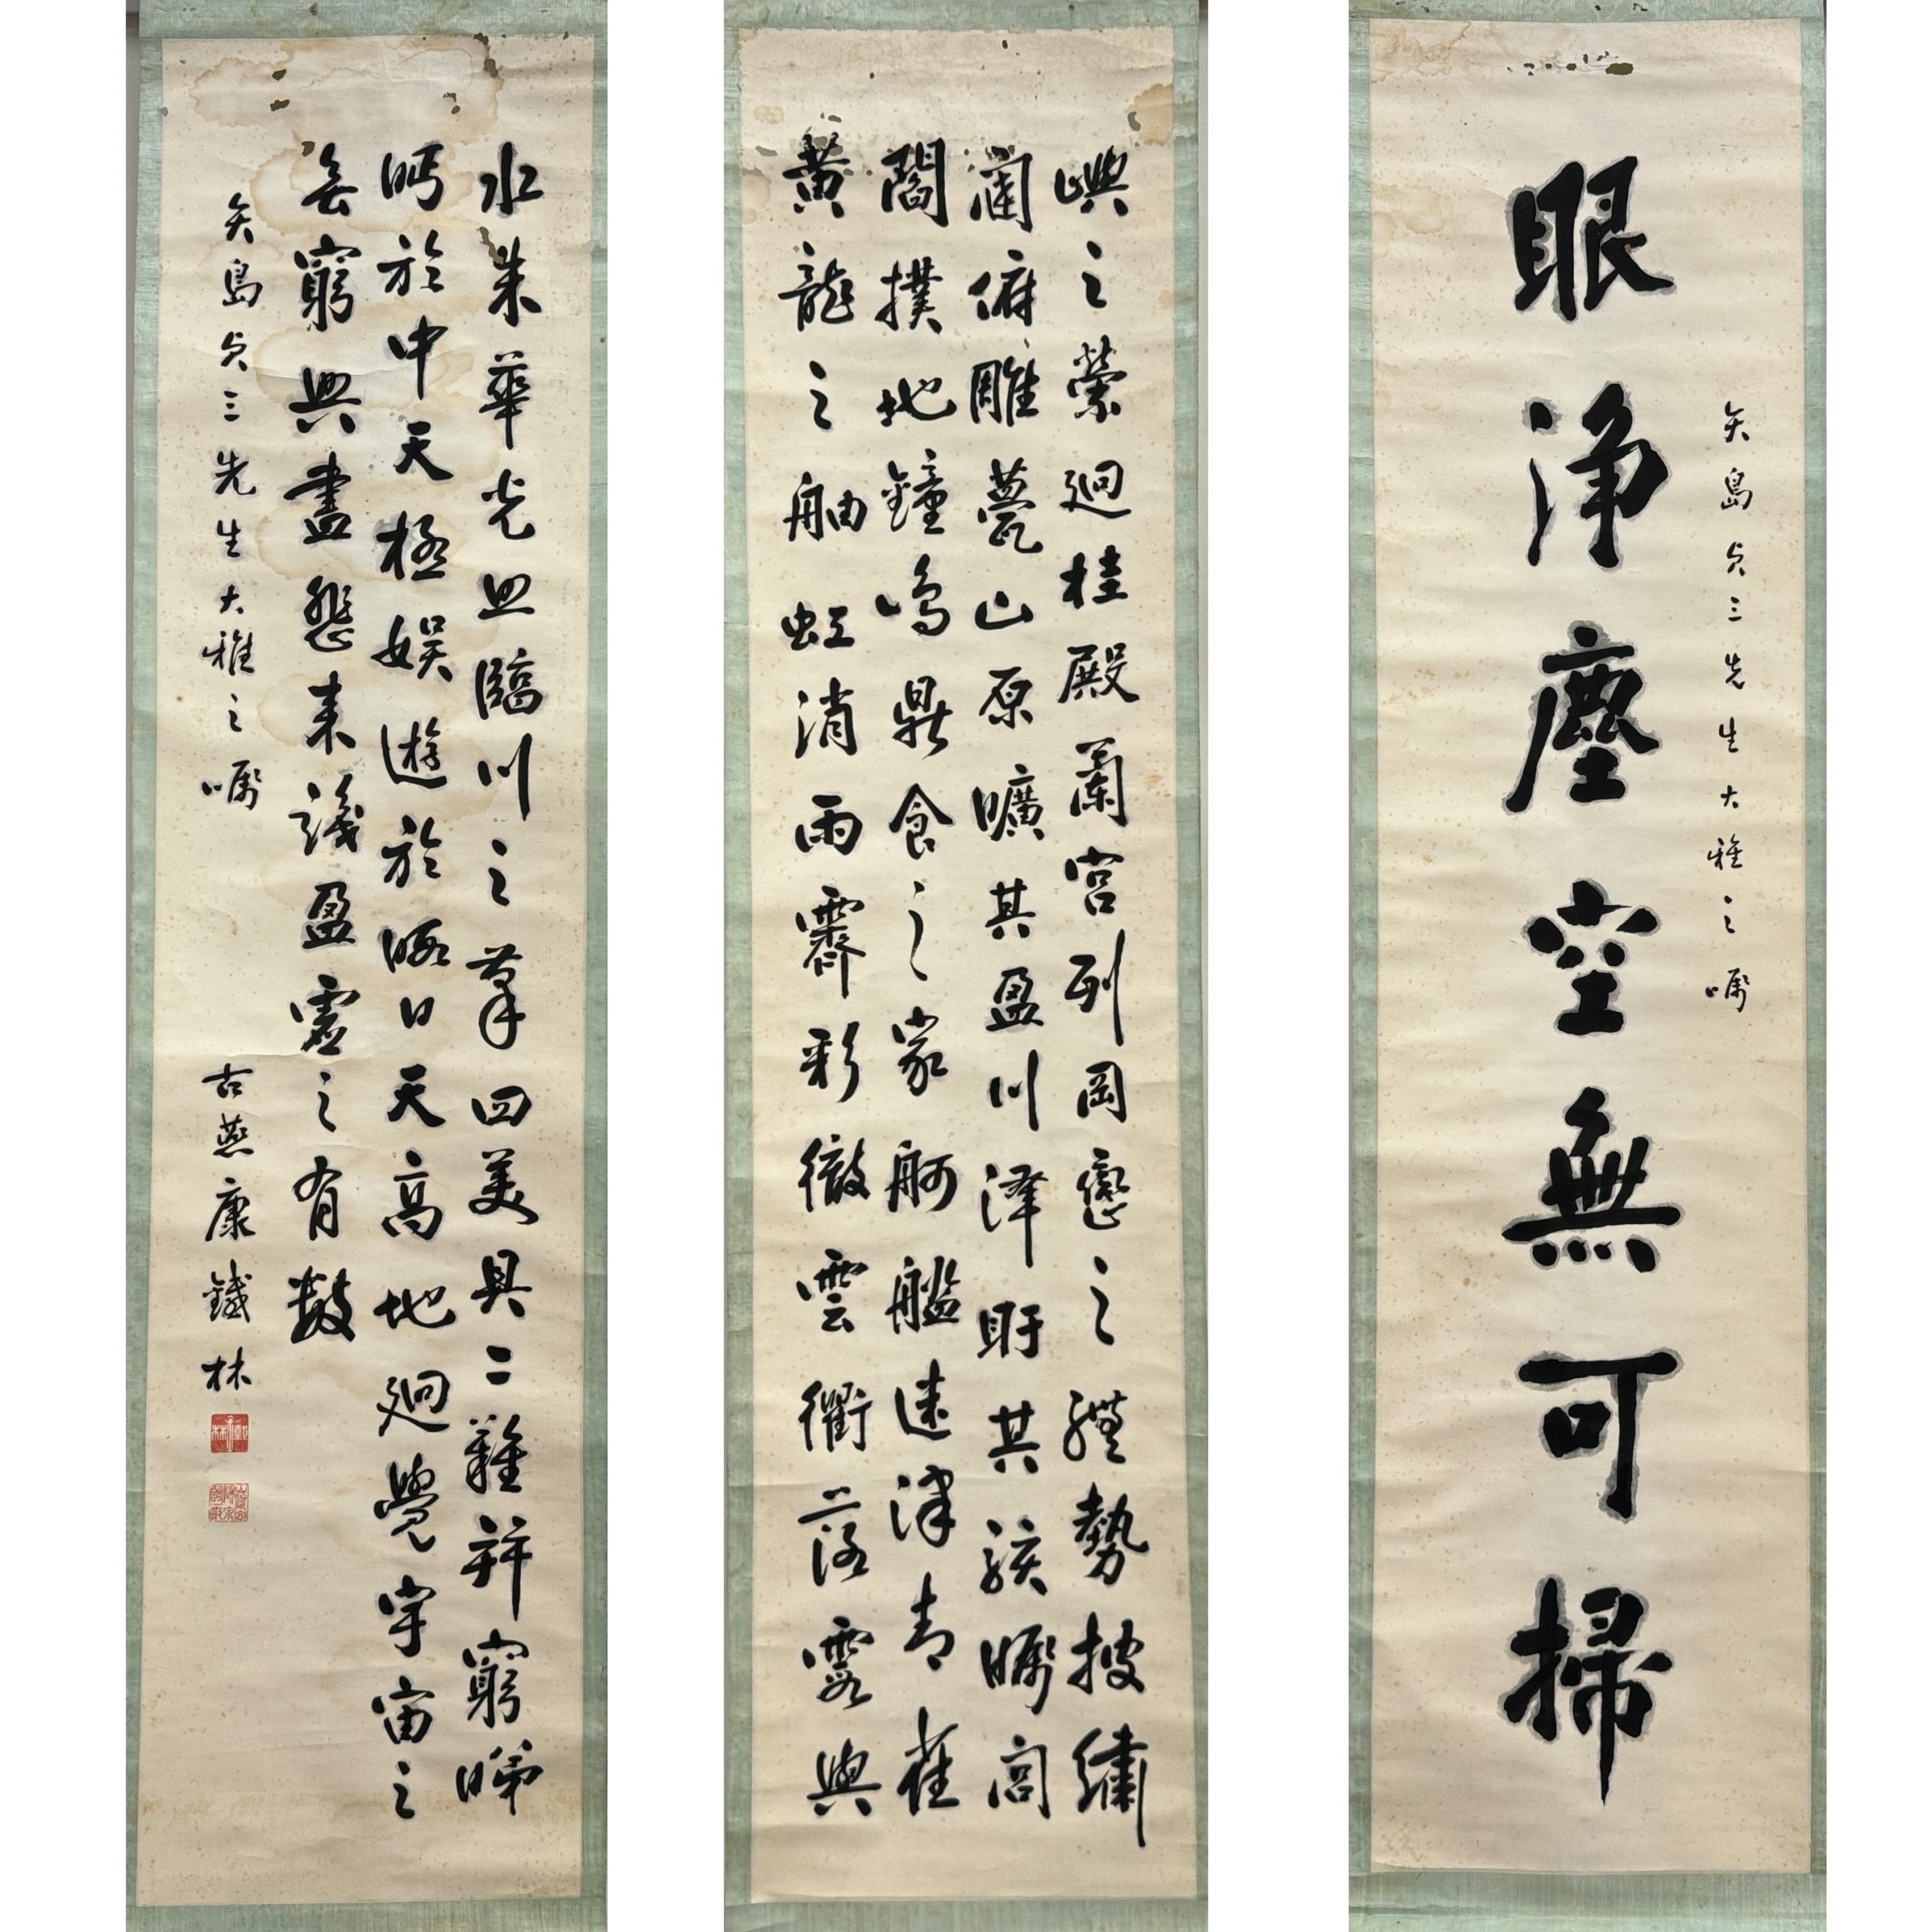 矢島貞三先生大雅之囑
眼淨塵空無可掃
嶼之縈迴桂殿蘭宮列岡巒之體勢披繡
闥俯雕甍山原曠其盈川澤盱其駭矚閭
閻撲地鐘鳴鼎食之家舸艦迷津青雀
黃龍之舳虹消雨霽彩徹雲衢落霞與
水朱華光照臨川之筆四美具二難并窮睇
眄於中天極娛遊於暇日天高地迥覺宇宙之
無窮興盡悲來識盈虛之有數
矢島貞三先生大雅之囑
古燕康鐵林